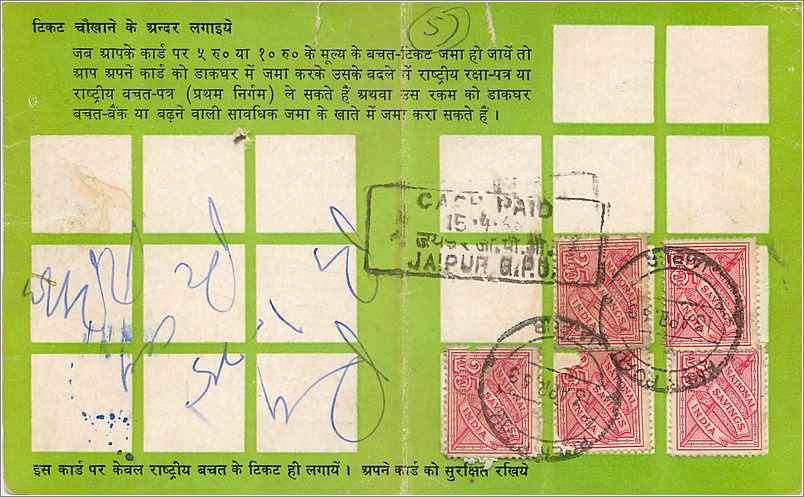 5
टिकट चौखाने के अन्दर लगाइये
जब आपके कार्ड पर ५ रु० या १० रु० के मूल्य के बचत-टिकट जमा हो जायें तो
आप अपने कार्ड को डाकघर में जमा करके उसके बदले में राष्ट्रीय रक्षा-पत्र या
राष्ट्रीय बचत-पत्र (प्रथम निर्गम) ले सकते हैं अथवा उस रकम को डाकघर
बचत-बैंक या बढ़ने वाली सावधिक जमा के खाते में जमा करा सकते हैं ।
CASH PAID
15.4.
जयपुर जी.पी.ओ.
JAIPUR G.P.O.
NATIONAL SAVINGS INDIA
NATIONAL SAVINGS INDIA
NATIONAL SAVINGS INDIA
NATIONAL SAVINGS INDIA
NATIONAL SAVINGS INDIA
इस कार्ड पर केवल राष्ट्रीय बचत के टिकट ही लगायें । अपने कार्ड को सुरक्षित रखिये